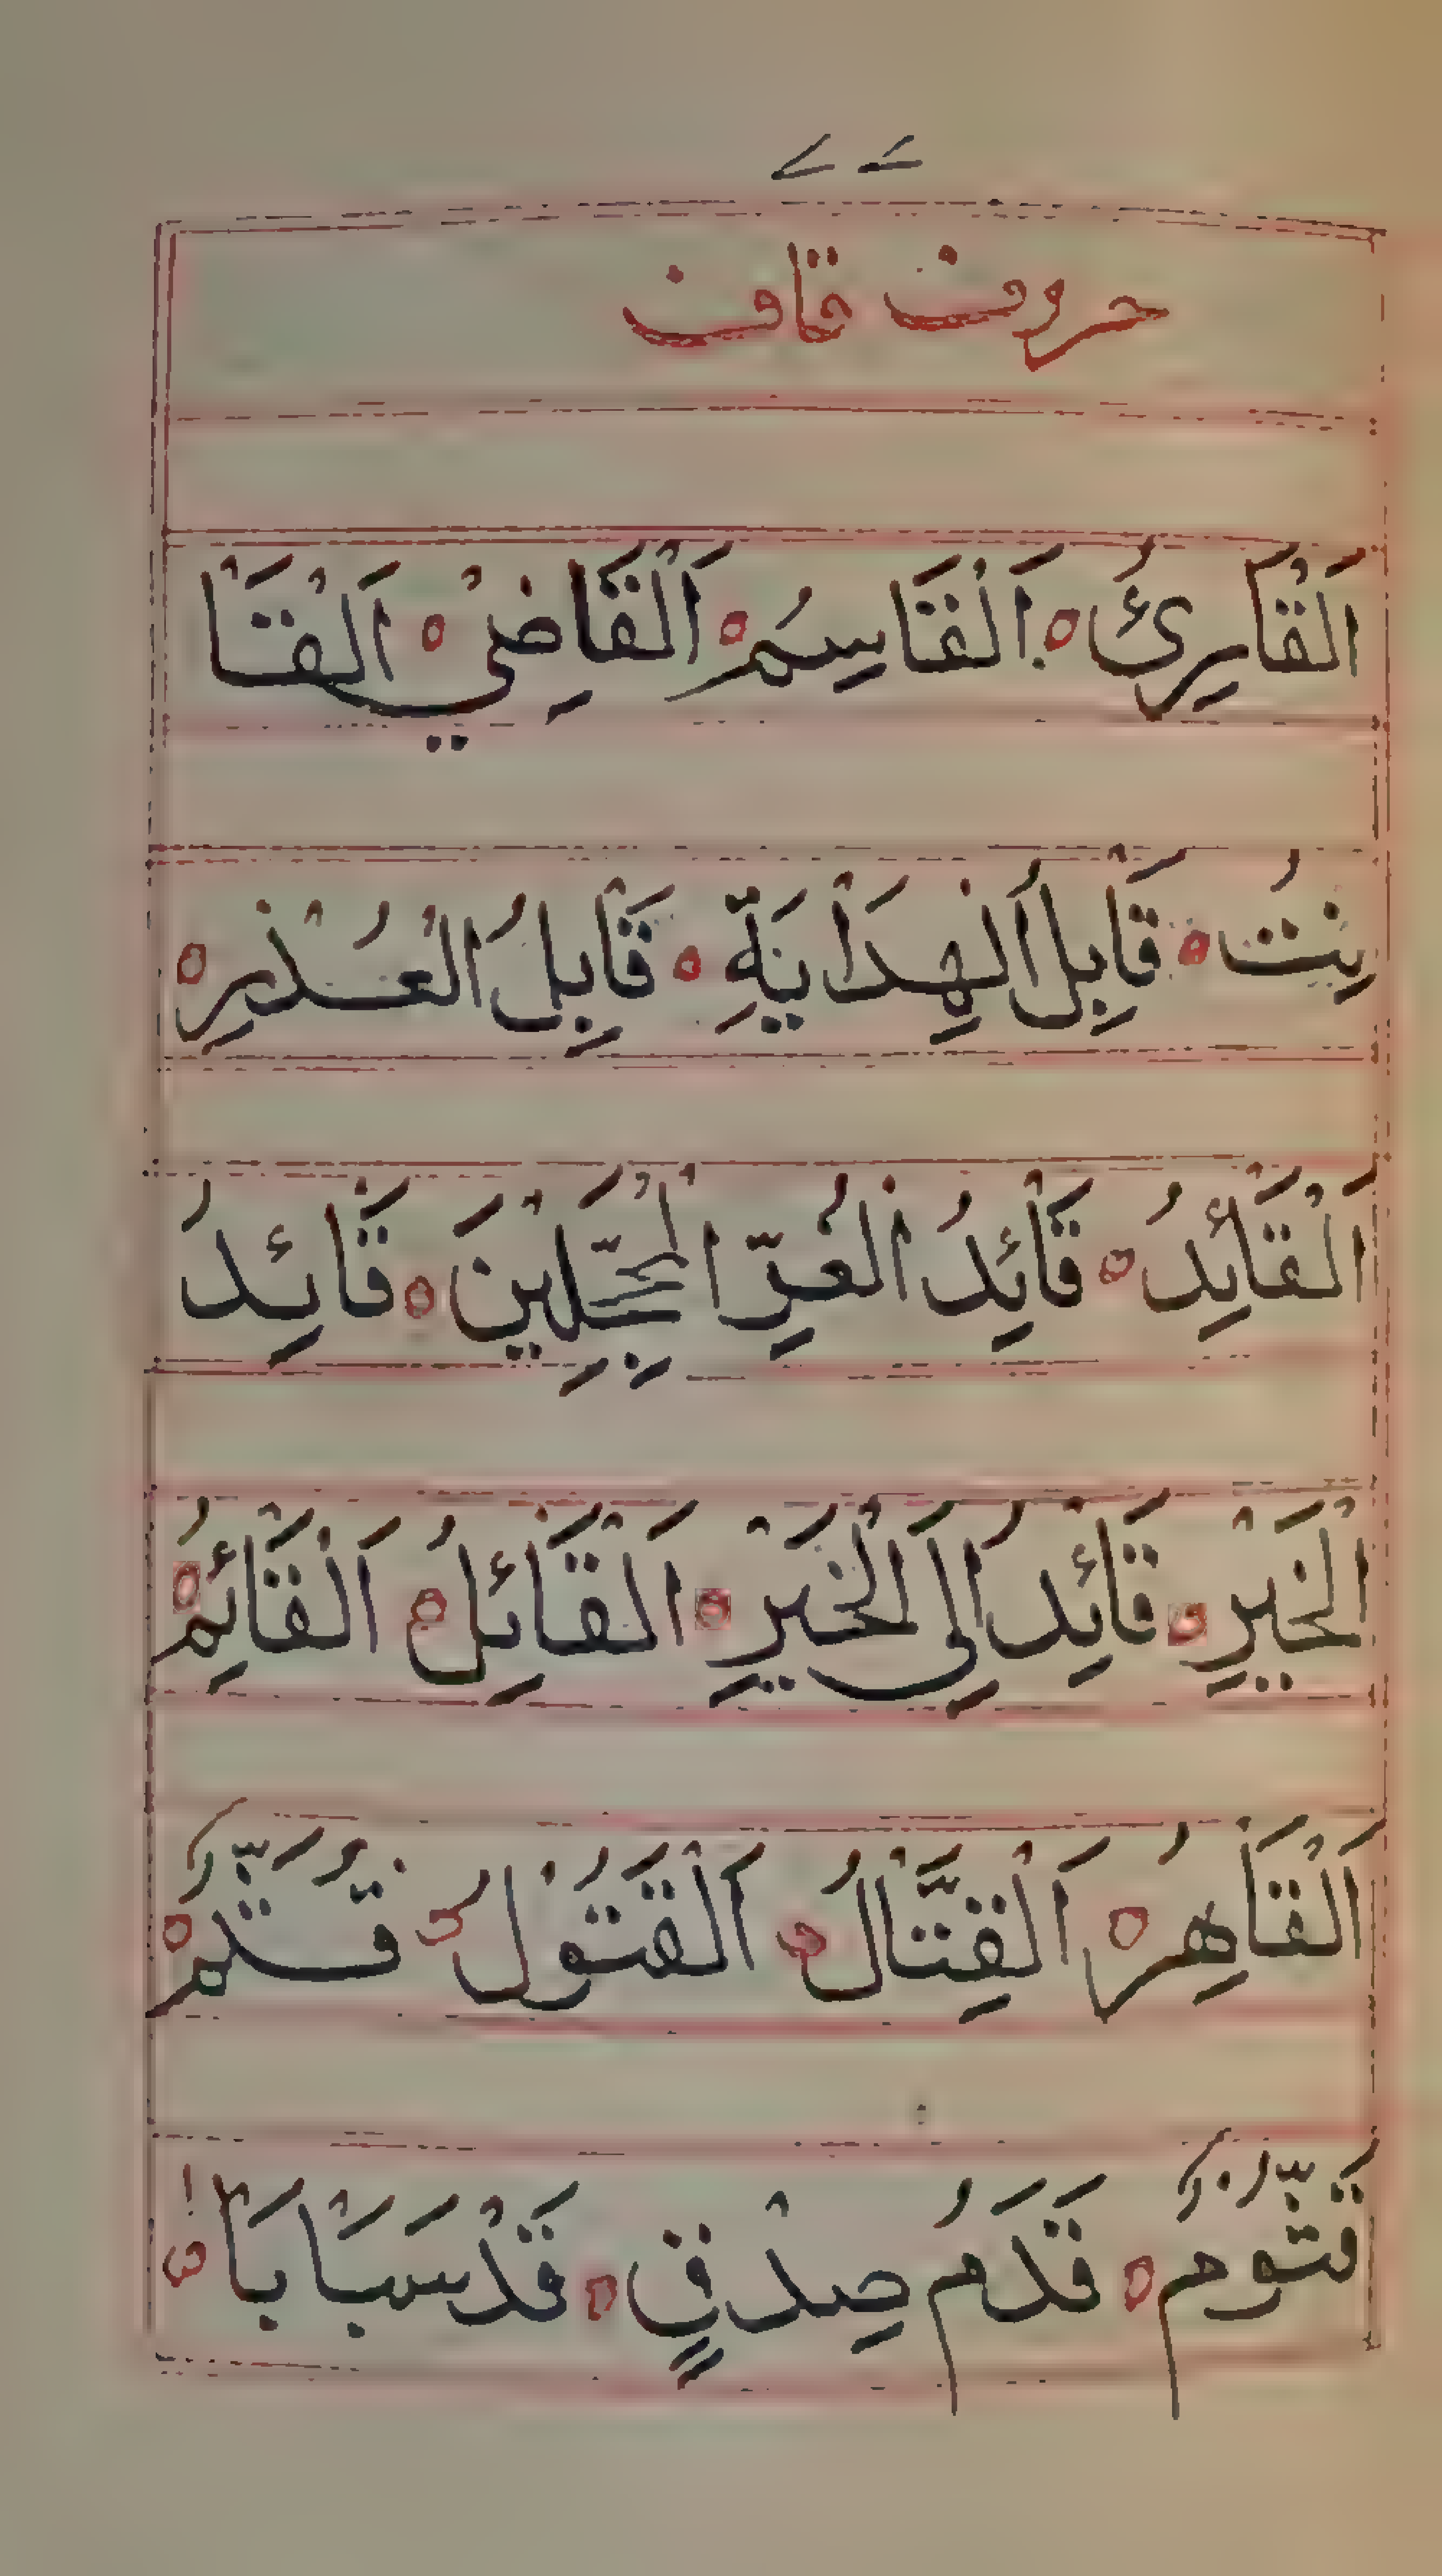 حروف قاف
اَلْقَارِئُ ○ اَلْقَاسِمُ ○ اَلْقَاضِيْ ○ اَلْقَا
نِتُ ○ قَابِلُ الْهِدَايَةِ ○ قَابِلُ الْعُذْرِ ○
اَلْقَائِدُ ○ قَائِدُ الْغُرِّ الْمُحَجَّلِيْنَ ○ قَائِدُ
الْخَيْرِ ○ قَائِدُ اِلَى الْخَيْرِ ○ اَلْقَائِلُ ○ اَلْقَائِمُ ○
اَلْقَاهِرُ ○ اَلْقِتَّالُ ○ اَلْقَتُوْلُ ○ قُثَمٌ ○
قَثُّوْمٌ ○ قَدَمُ صِدْقٍ ○ قَدْ سَبَايَا ○